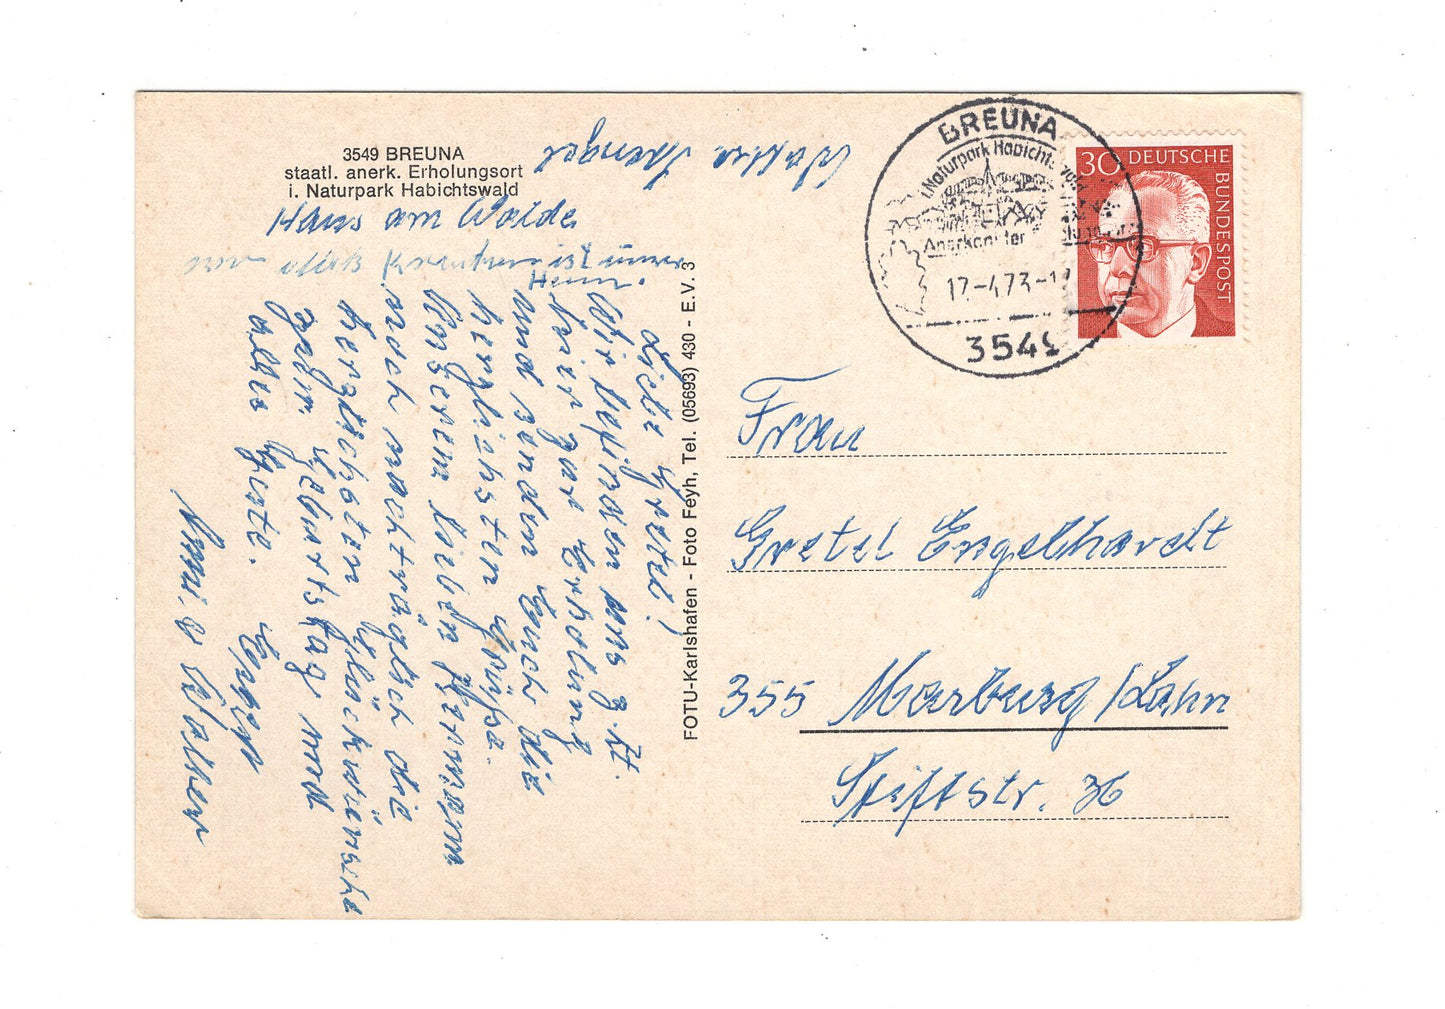 3549 BREUNA
staatl. anerk. Erholungsort
i. Naturpark Habichtswald
Haus am Walde
Liebe Gretel!
Wir befinden uns z. Zt.
hier zur Erholung
und senden Euch die
herzlichsten Grüße.
Unserem lieben Hermann
auch nachträglich die
herzlichsten Glückwünsche
zum Geburtstag und
alles Gute. Eure
Anni. u Walter
FOTU-Karlshafen - Foto Feyh, Tel. (05693) 430 - E.V. 3
BREUNA
i. Naturpark Habichts
Anerkannter
17.-4.73-1
3549
30 DEUTSCHE
BUNDESPOST
Frau
Gretel Engelhardt
355 Marburg/Lahn
Stiftstr. 36